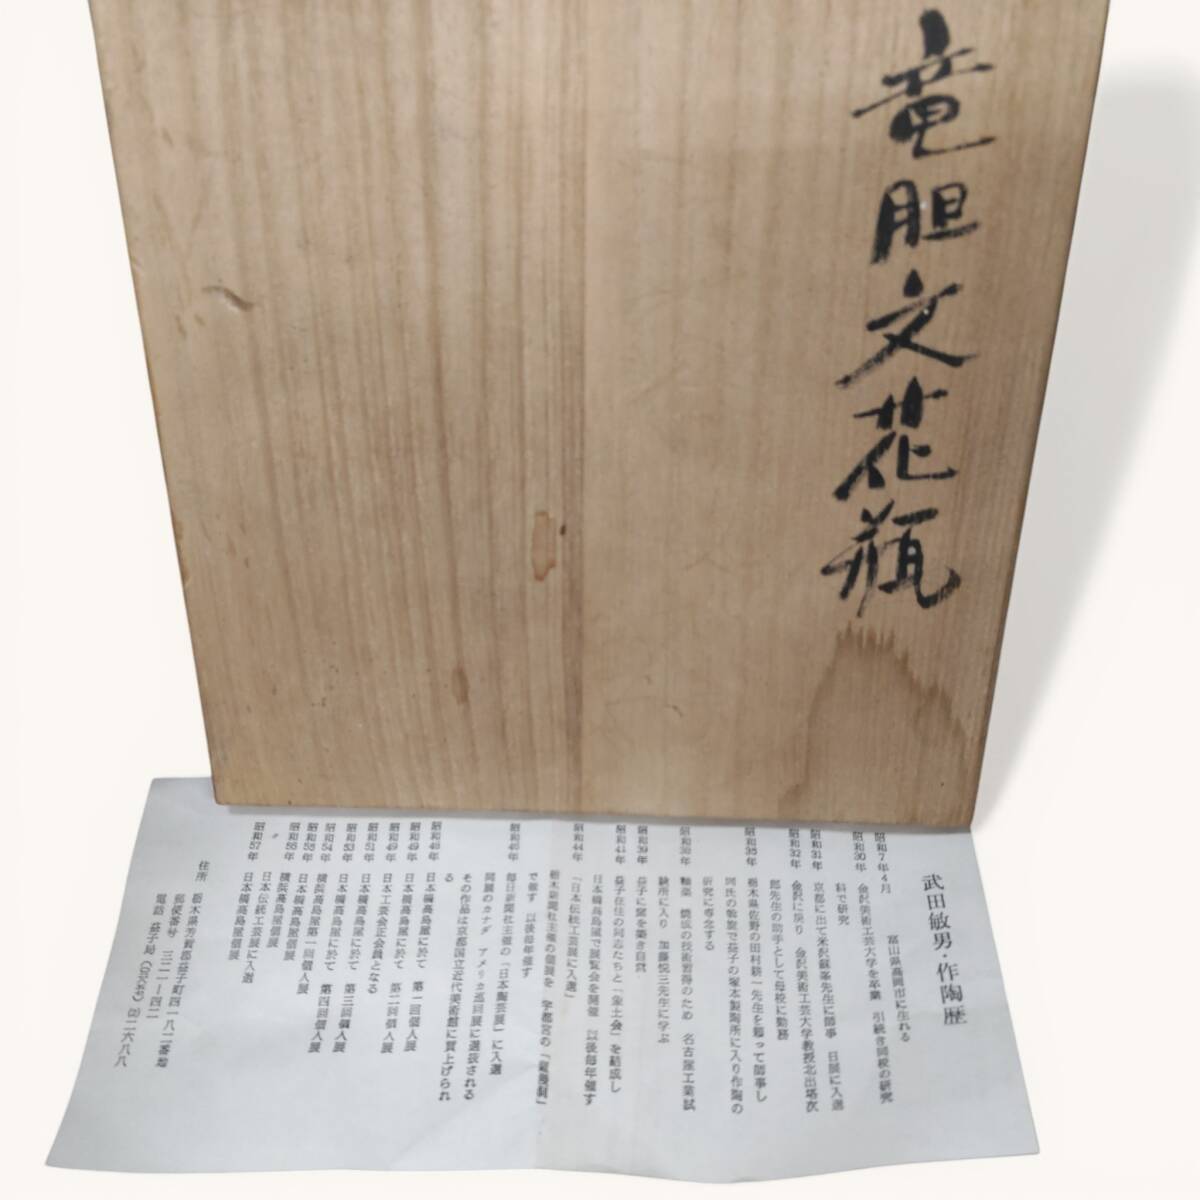 竜胆文花瓶
武田敏男・作陶歴
昭和7年4月 富山県高岡市に生れる
昭和30年 金沢美術工芸大学を卒業 引続き同校の研究
科で研究
昭和31年 京都に出て米沢蘇峯先生に師事 日展に入選
昭和32年 金沢に戻り 金沢美術工芸大学教授北出塔次
郎先生の助手として母校に勤務
昭和35年 栃木県佐野の田村耕一先生を頼って師事し
同氏の斡旋で益子の塚本製陶所に入り作陶の
研究に専念する
昭和38年 釉薬 焼成の技術習得のため 名古屋工業試
験所に入り 加藤悦三先生に学ぶ
昭和39年 益子に窯を築き自営
昭和41年 益子在住の同志たちと「象土会」を結成し
日本橋高島屋で展覧会を開催 以後毎年催す
昭和44年 「日本伝統工芸展に入選」
栃木新聞社主催の個展を 宇都宮の
で催す 以後毎年催す
昭和46年 毎日新聞社主催の「日本陶芸展」に入選
同展のカナダ アメリカ巡回展に選抜される
その作品は京都国立近代美術館に買上げられ
る
昭和48年 日本橋高島屋に於て 第一回個人展
昭和49年 日本橋高島屋に於て 第二回個人展
昭和49年 日本工芸会正会員となる
昭和51年 日本橋高島屋に於て 第三回個人展
昭和53年 日本橋高島屋に於て 第四回個人展
昭和54年 横浜高島屋第一回個人展
昭和55年 日本橋高島屋個人展
昭和56年 横浜高島屋個展
〃 日本伝統工芸展
昭和57年 日本橋高島屋個展
住所 栃木県芳賀郡益子町四一八二番地
郵便番号 三二一―四二